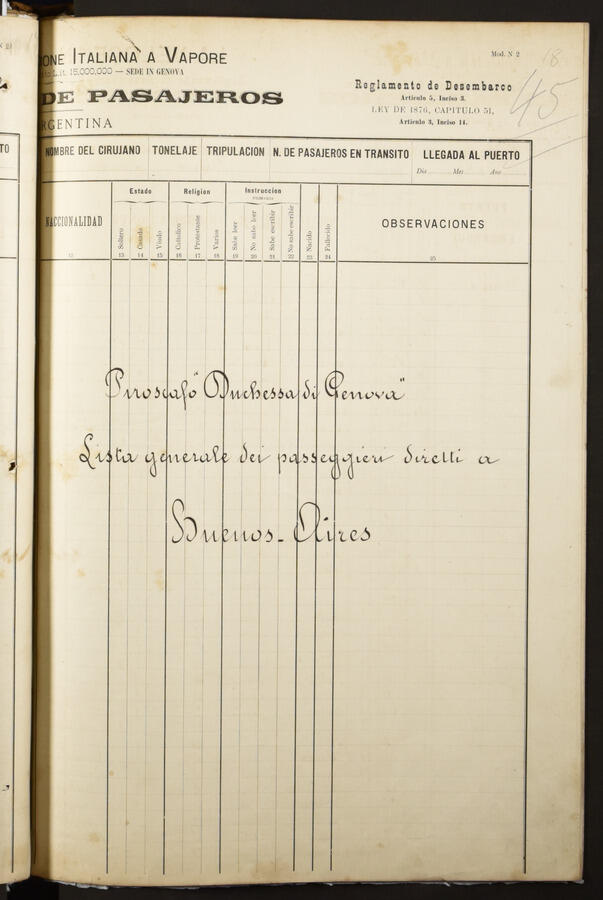 ONE ITALIANA A VAPORE
Mod. N 2
18
L.it. 15,000,000 — SEDE IN GENOVA
45
DE PASAJEROS
Reglamento de Desembarco
Artículo 5, Inciso 3.
RGENTINA
LEY DE 1876, CAPITULO 51,
Artículo 3, Inciso 14.
TO
NOMBRE DEL CIRUJANO TONELAJE TRIPULACION N. DE PASAJEROS EN TRANSITO LLEGADA AL PUERTO
Dia Mes Ano
NACCIONALIDAD Estado Religion Instruccion OBSERVACIONES
Soltero Casado Viudo Cattolico Protestante Varios Sabe leer No sabe leer Sabe escribir No sabe escribir Nacido Fallecido
12 13 14 15 16 17 18 19 20 21 22 23 24 25
Piroscafo "Duchessa di Genova"
Lista generale dei passeggieri diretti a
Buenos-Aires